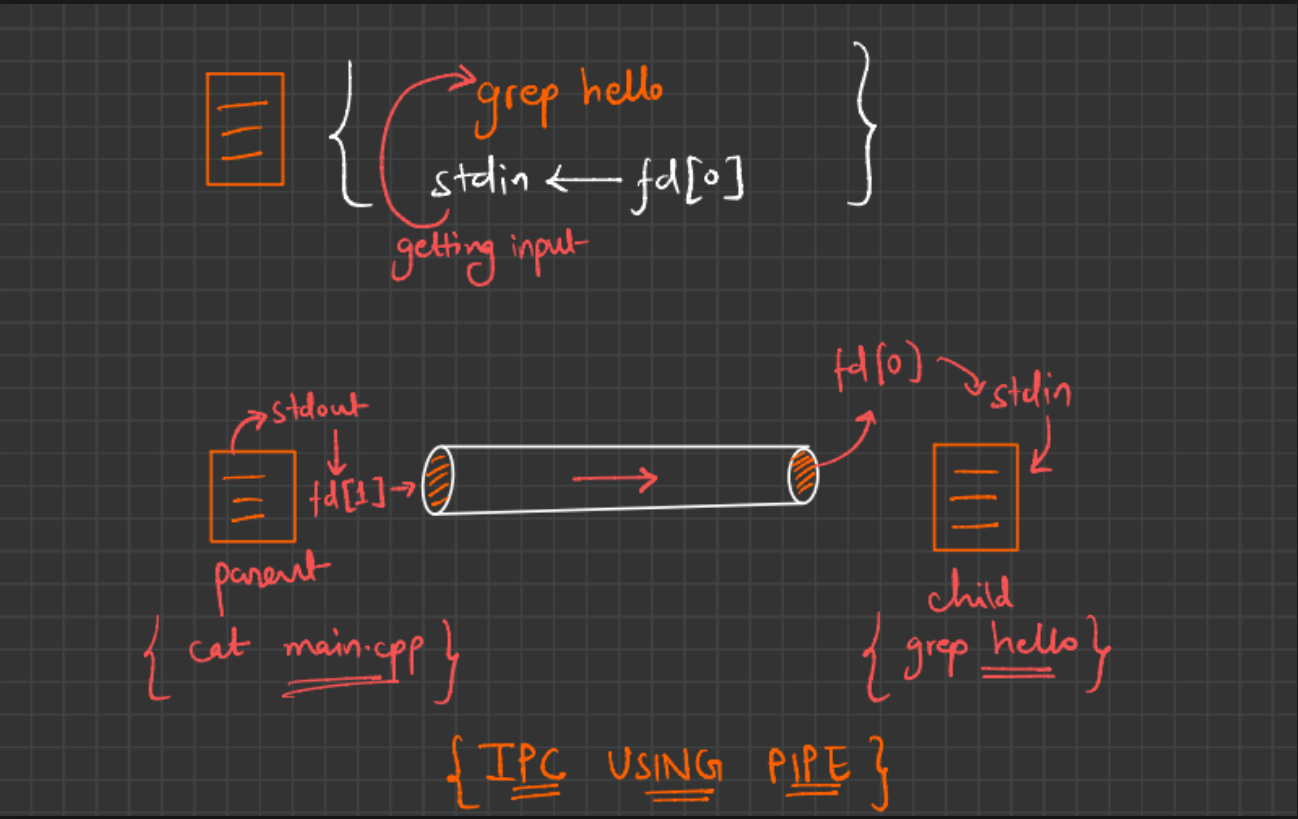 grep hello
stdin ← fd[0]
getting input
fd[0] → stdin
stdout
fd[1] →
parent
child
{ cat main.cpp }
{ grep hello }
{ IPC USING PIPE }